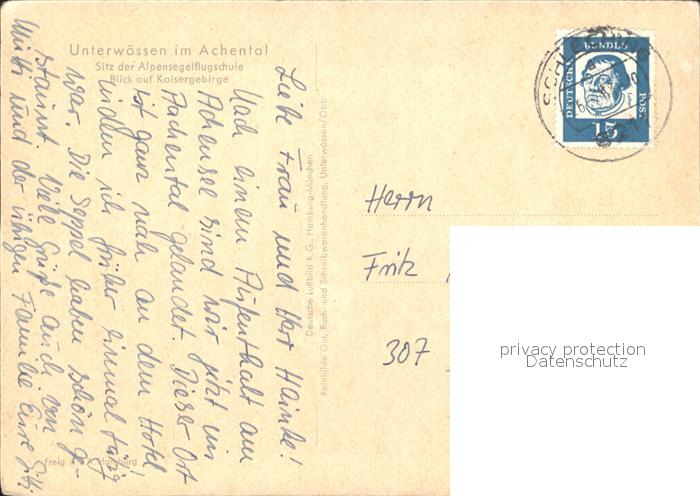 Unterwössen im Achental
Sitz der Alpensegelflugschule
Blick auf Kaisergebirge
Liebe Frau und Herr Hainke!
Nach einem Aufenthalt am
Achensee sind wir jetzt im
Aachental gelandet. Dieser Ort
ist ganz nah an dem Hotel
indem ich früher einmal tätig
war. Die Seppel haben schön ge-
staunt. Viele Grüße auch von
Mutti und der übrigen Familie Eure
Deutsche Luftbild K.G., Hamburg-München
Reinhilde Gut, Buch- und Schreibwarenhandlung, Unterwössen/Obb.
Freig.
Hamburg
DEUTSCHE
BUNDES
POST
15
Herrn
Fritz
307
privacy protection
Datenschutz